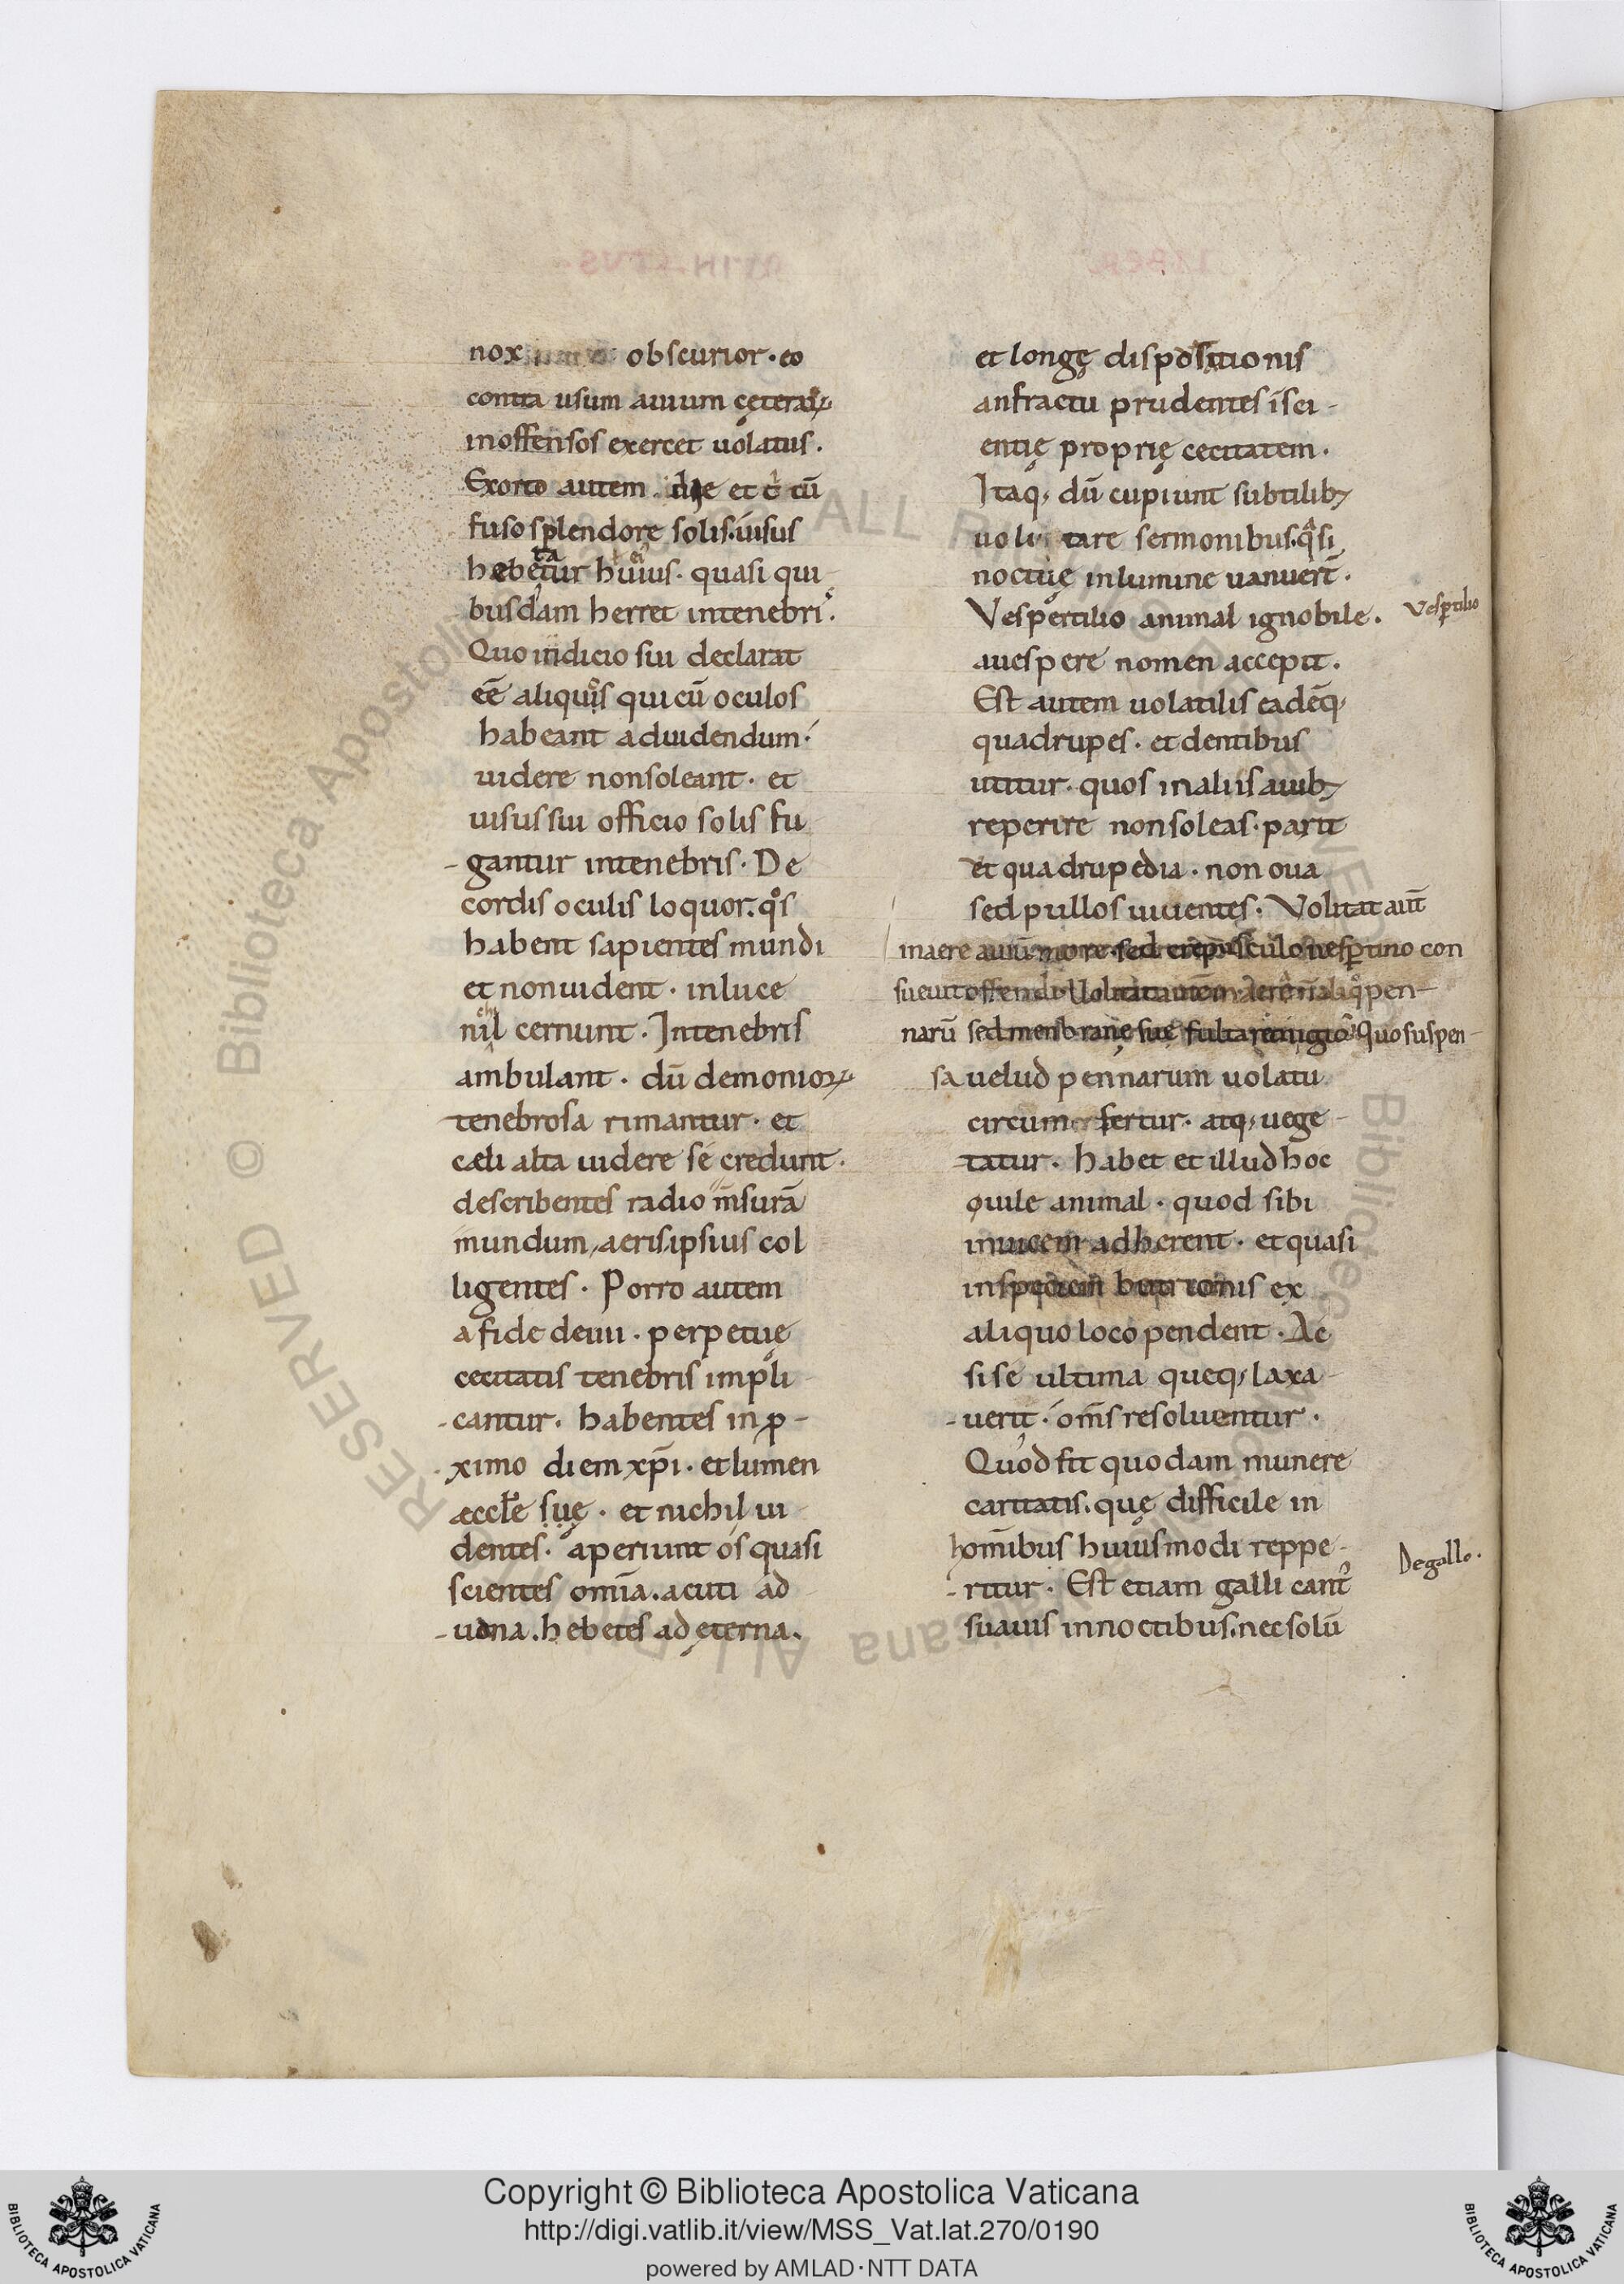 nox obscurior · eo
contra usum auium cęteraꝝ
inoffensos exercet uolatus .
Exorto autem die et cͥcū
fuso splendore solis . uisus
hebetatur huius · quasi qui
busdam herret intenebris .
Quo indicio sui declarat
eē aliquos qui cū oculos
habeant aduidendum ·
uidere nonsoleant · et
uisus sui officio solis fu
-gantur intenebris · De
cordis oculis loquor . qͦs
habent sapientes mundi
et nonuident · inluce
nichil cernunt · Intenebris
ambulant · dū demonioꝝ
tenebrosa rimantur · et
cæli alta uidere sé credunt ·
describentes radio m̄surā
mundum, aeris, ipsius col
ligentes · Porro autem
a fide deuii · perpetuę
cecitatis tenebris impli
-cantur · habentes in ꝓ-
·ximo diem xp̄i · et lumen
æccłe suę · et nichil ui
dentes · aperiunt ós quasi
scientes om̄ia . acuti ad
-uana . hebetes ad ęterna .
et longę dispositionis
anfractu prudentes í sci-
entię proprię cecitatem ·
Itaq; dū cupiunt subtilib;
uolitare sermonibus . qͣsi
noctuę inlumine uanuer̄t ·
Vespertilio animal ignobile .
Vesꝑtilio
auespere nomen accepit .
Est autem uolatilis eadēq;
quadrupes · et dentibus
utitur · quos inaliis auib;
reperire nonsoleas · parit
et quadrupedia · non oua
sed pullos uiuentes · Volitat aut̄
inaere auiū more · sed crepusculo uesꝑtino con
sueuit offendi · Volitat autem inaere n̄ aliqͦ pen-
narū sed menbranę suę fulta remigio · Quo suspen-
sa uelud pennarum uolatu
circum fertur · atq; uege-
tatur · habet et illud hoc
quile animal · quod sibi
inuicem adherent · et quasi
inspeciem botrionis ex
aliquo loco pendent · Ac
si se ultima queq; laxa-
-uerit · om̄s resoluentur ·
Quod fit quodam munere
caritatis . quę difficile in
hom̄ibus huiusmodi reppe-
-ritur · Est etiam galli cantꝰ
De gallo ·
suauis innoctibus . nec solū
Copyright © Biblioteca Apostolica Vaticana
http://digi.vatlib.it/view/MSS_Vat.lat.270/0190
powered by AMLAD · NTT DATA